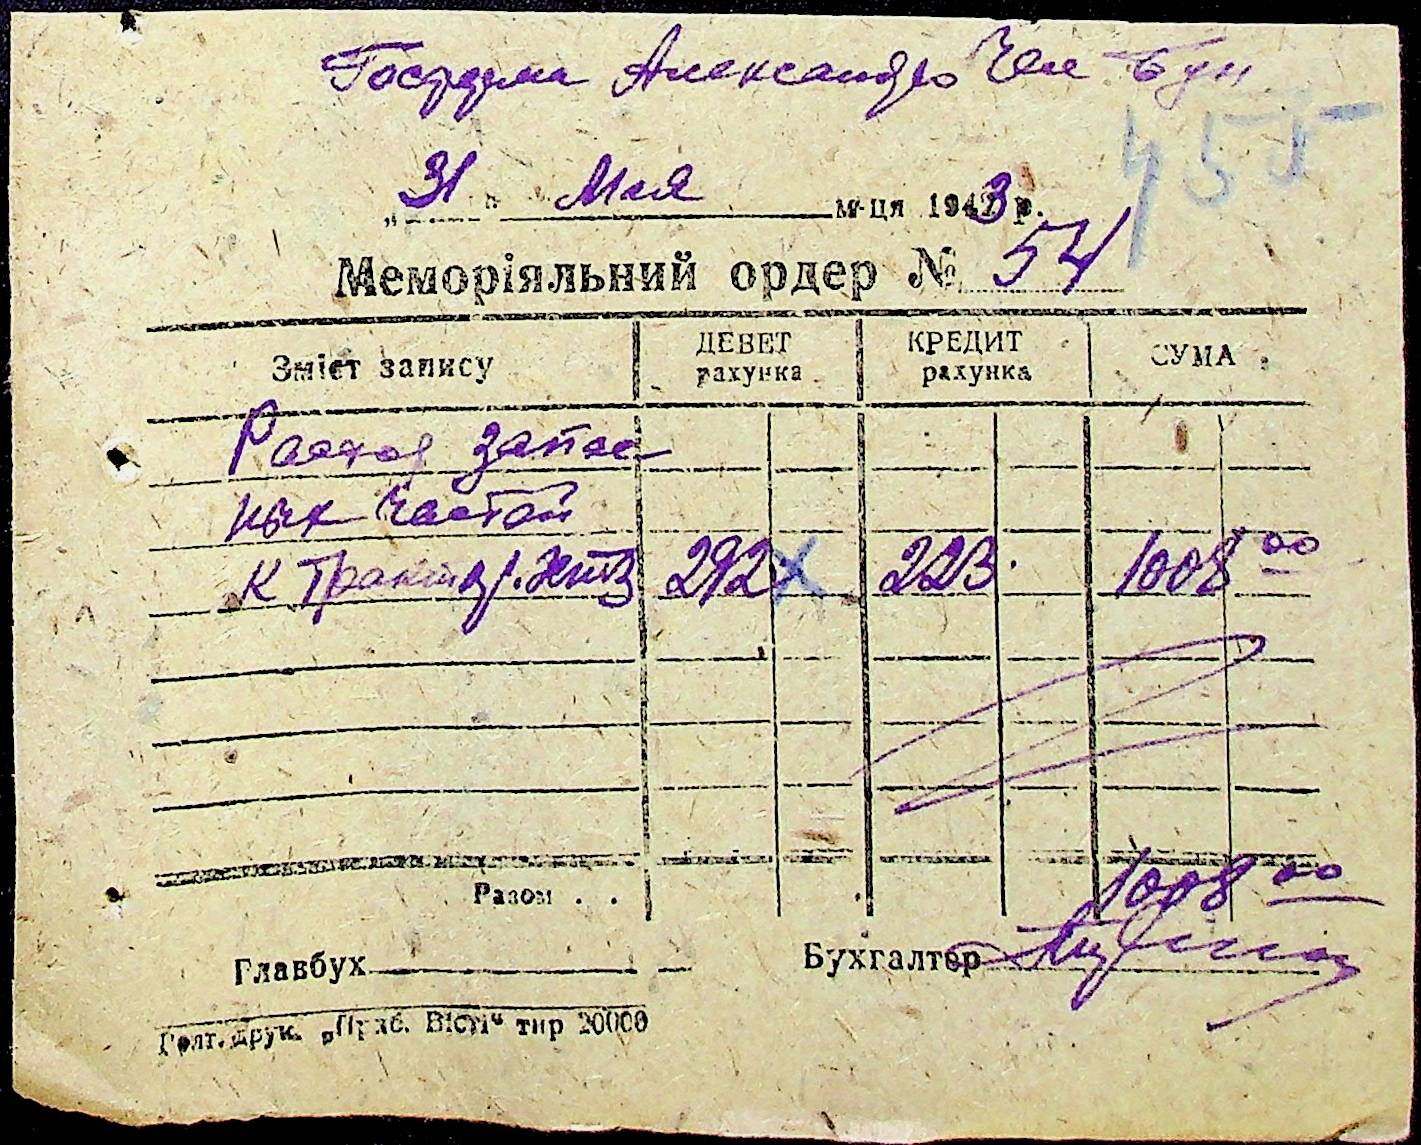 Госферма Александро
455
„31" Мая м-ця 1943 р.
Меморіяльний ордер № 54
Зміст запису ДЕБЕТ рахунка КРЕДИТ рахунка СУМА
Расход запас
ных частей
к трактор. ХТЗ 292 223 1008 00
Разом . . 1008 00
Главбух Бухгалтер
Голт. друк. „Приб. Вісті“ тир 20000